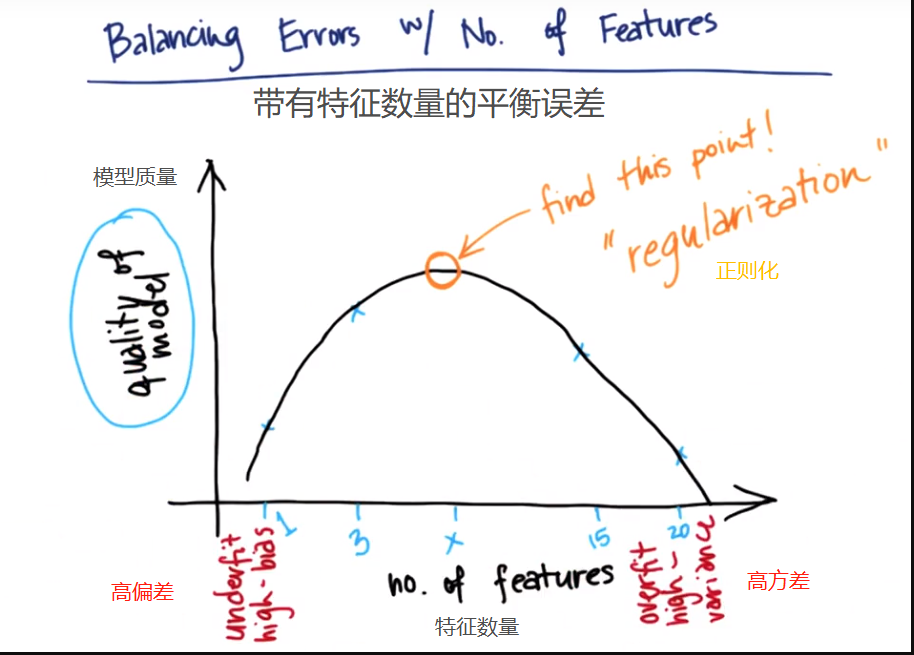 Balancing Errors w/ No. of Features
带有特征数量的平衡误差
模型质量
quality of
model
find this point!
"regularization"
正则化
1
3
x
15
20
underfit
high-bias
高偏差
no. of features
特征数量
overfit
high-
variance
高方差